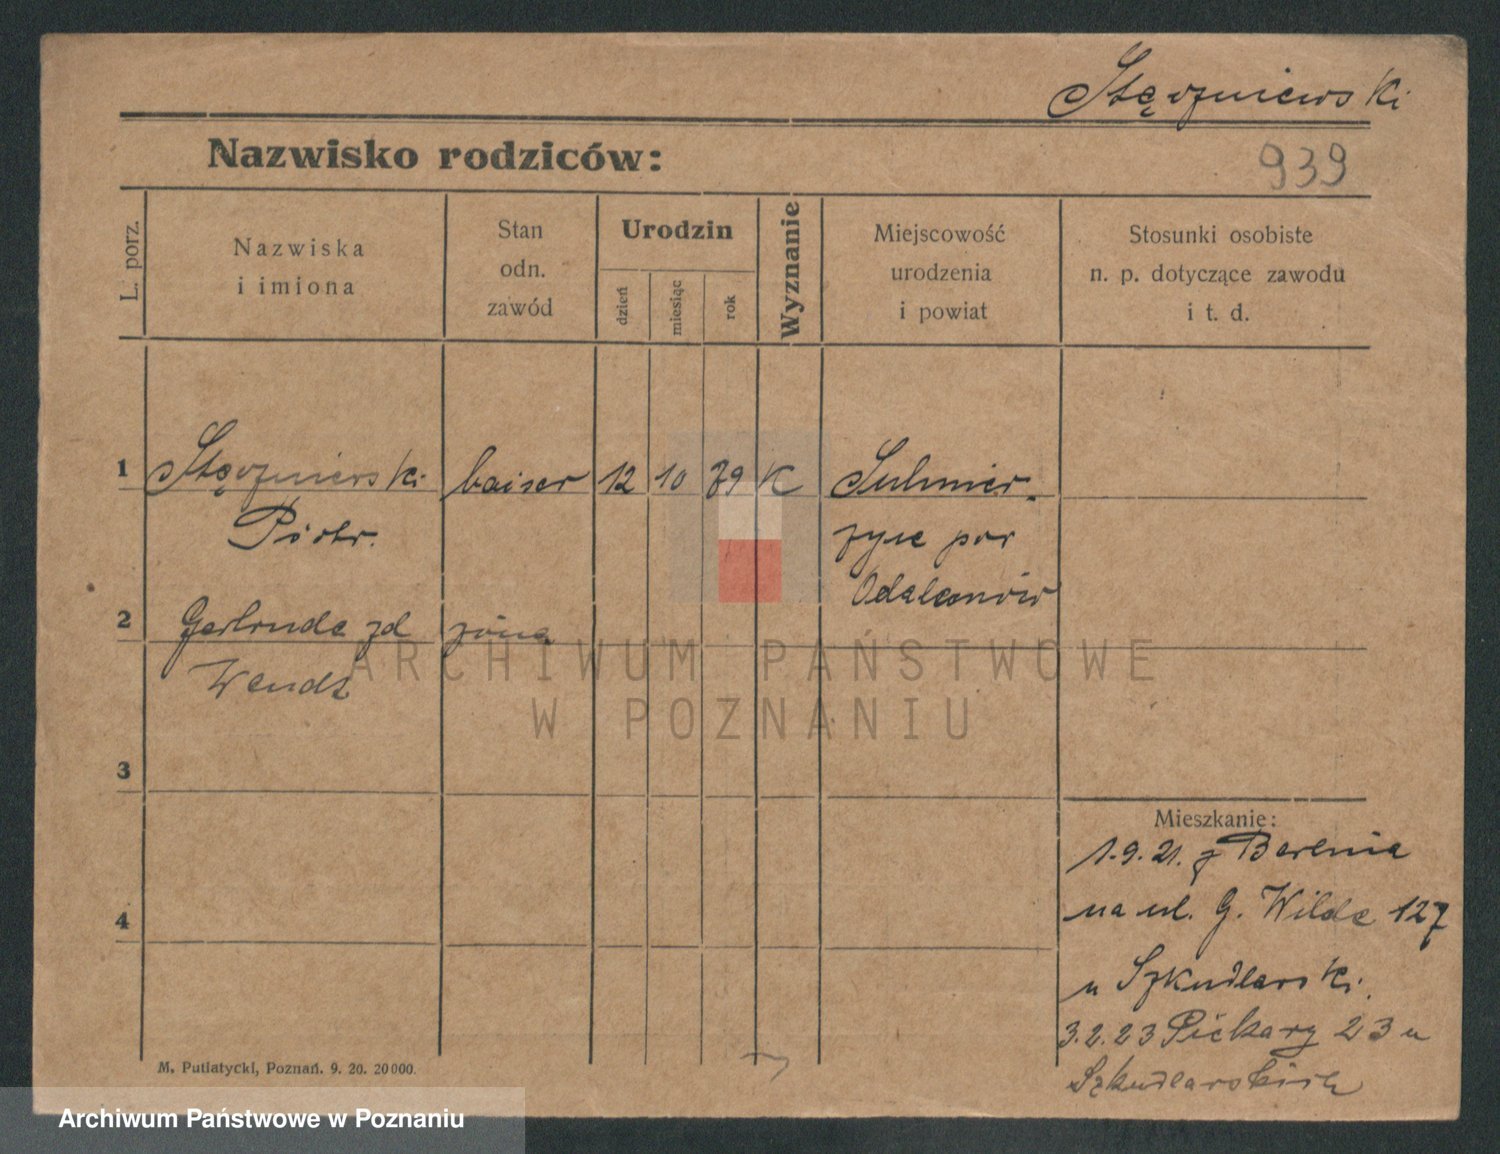 Stęczniewski
939
Nazwisko rodziców:
L. porz.
Nazwiska
i imiona
Stan
odn.
zawód
Urodzin
dzień
miesiąc
rok
Wyznanie
Miejscowość
urodzenia
i powiat
Stosunki osobiste
n. p. dotyczące zawodu
i t. d.
1 Stęczniewski 12 10 79 K Sulmier-
Piotr. zyce pow
Odalanów
2 Gertruda zd żona
Wendt
3
Mieszkanie:
1.9.21. z Berlina
4
na ul. G. Wilda 127
u Szkudlarski.
3.2.23 Piekary 23 u
Szkudlarskich
M. Putiatycki, Poznań. 9. 20. 20000.
ARCHIWUM PAŃSTWOWE
W POZNANIU
Archiwum Państwowe w Poznaniu